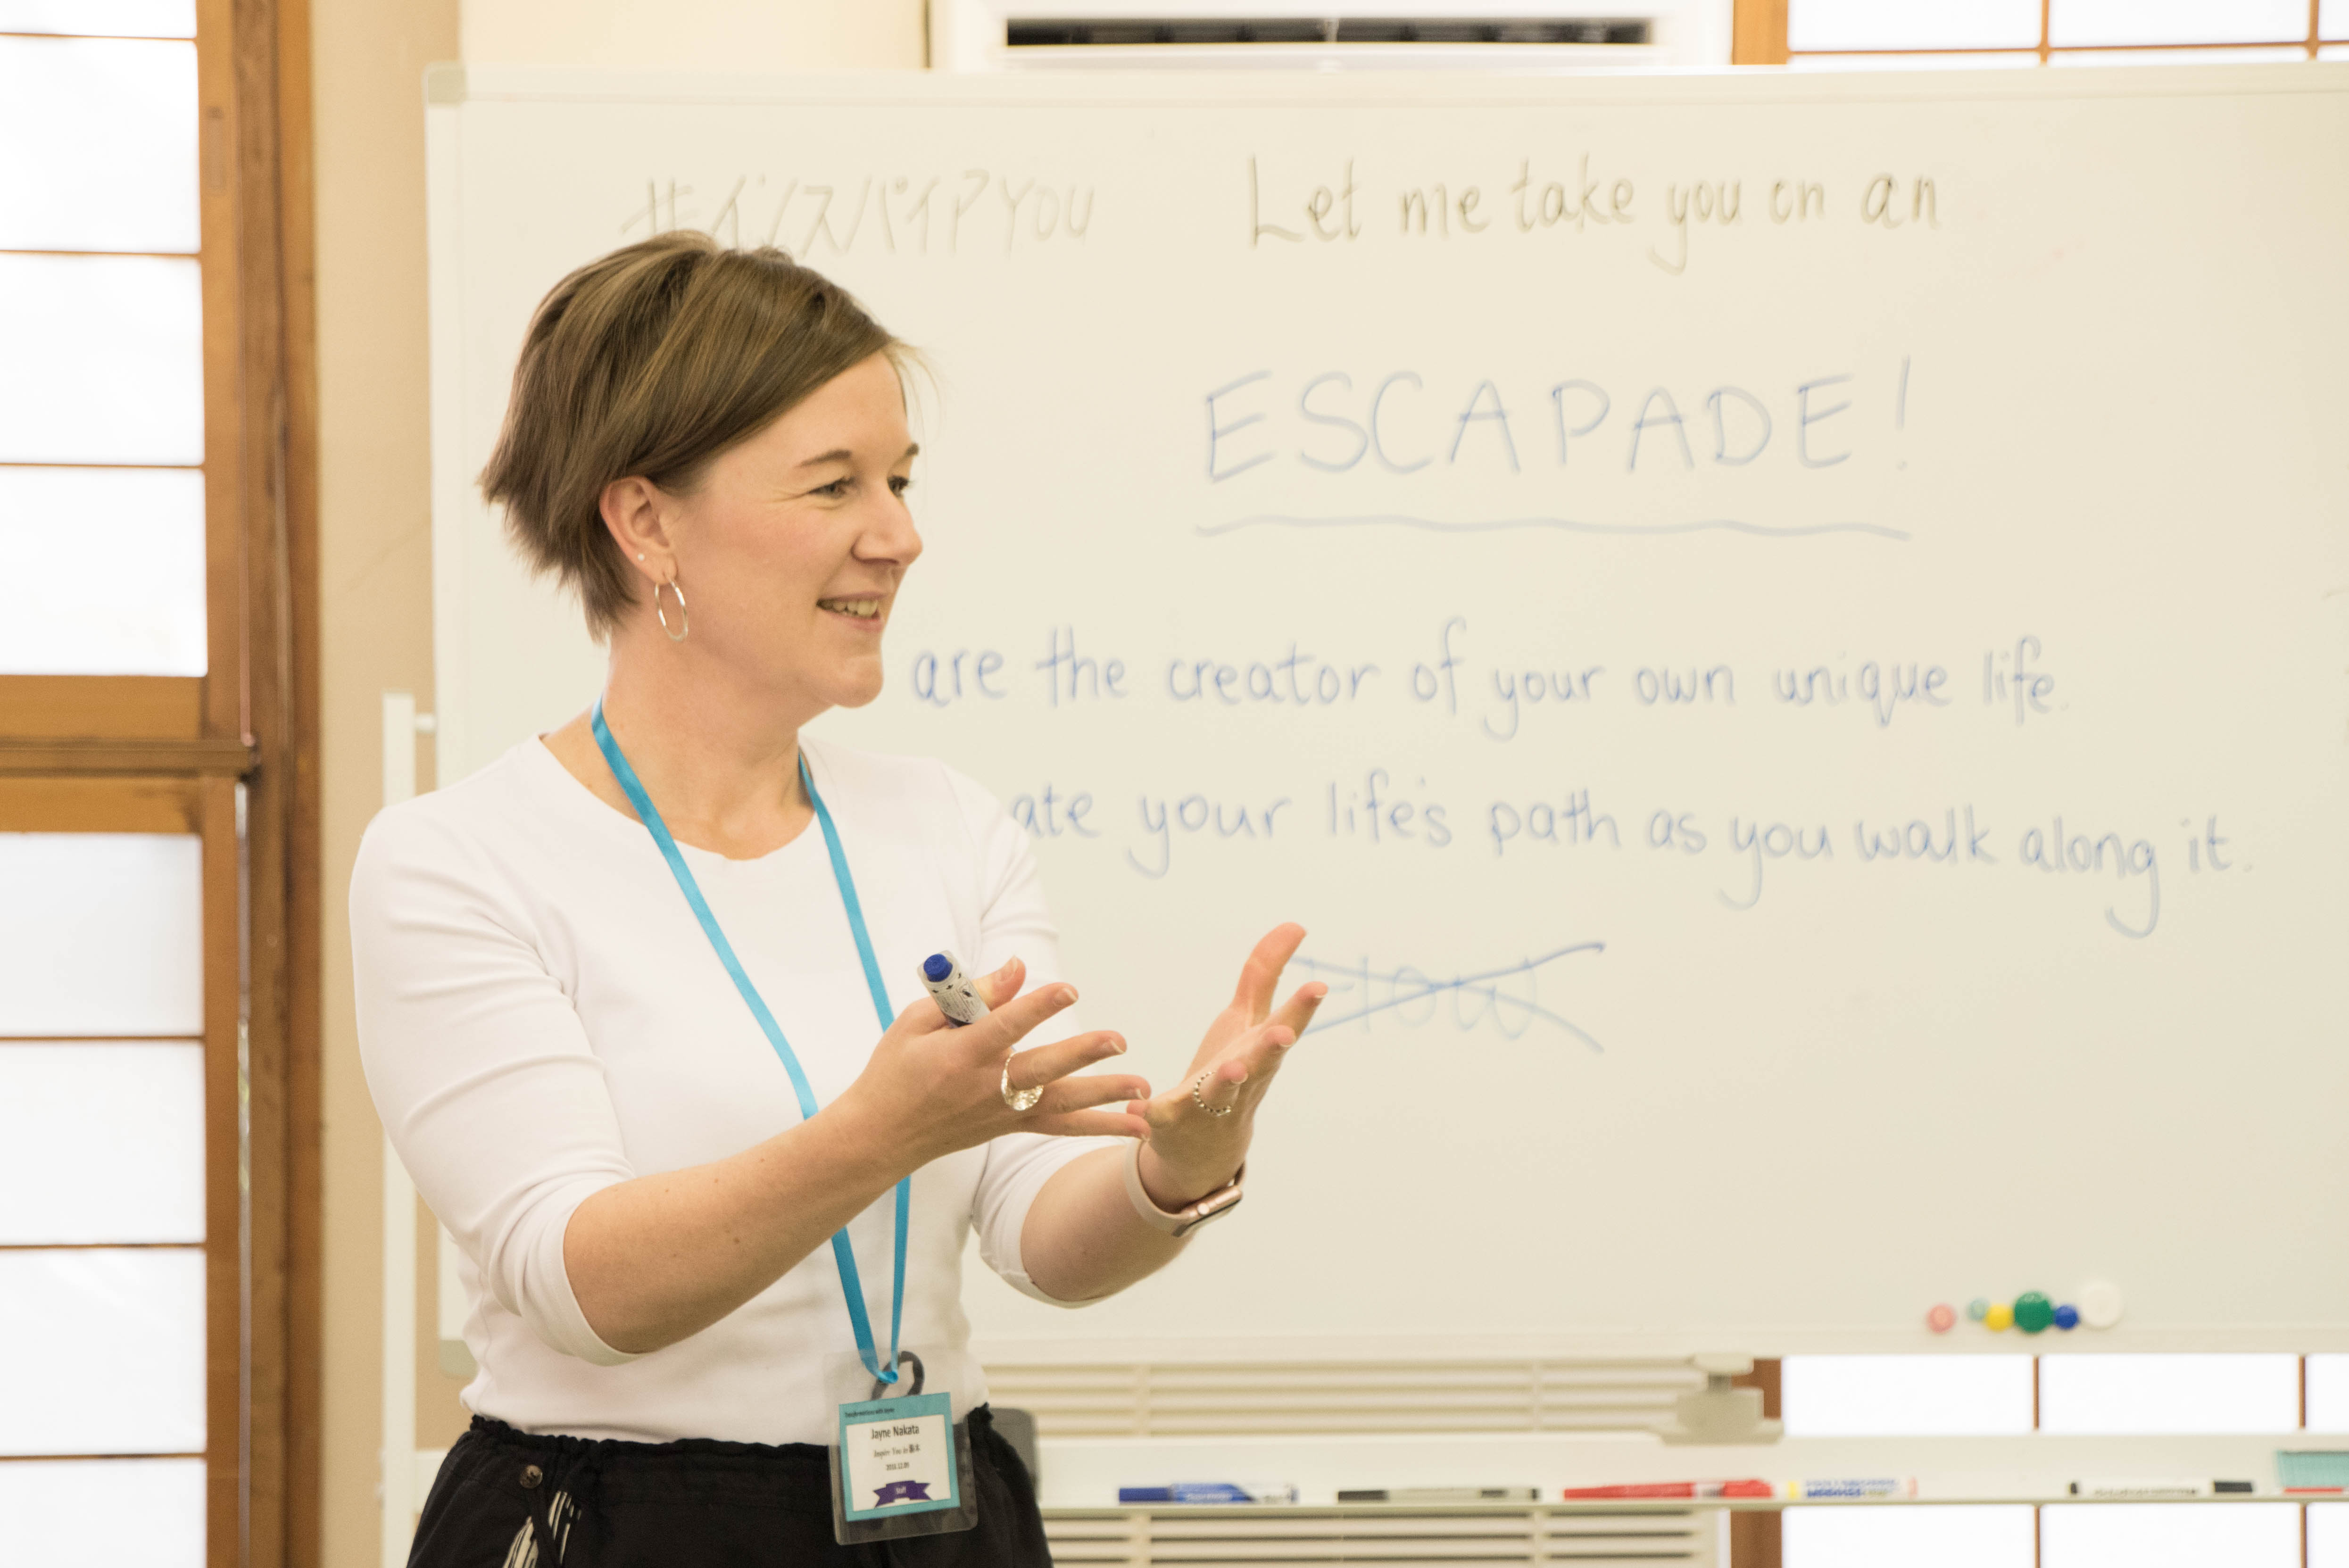 #インスパイアYOU
Let me take you on an
ESCAPADE!
are the creator of your own unique life.
ate your life's path as you walk along it.
How
Transformations with Jayne
Jayne Nakata
Inspire You in
Staff